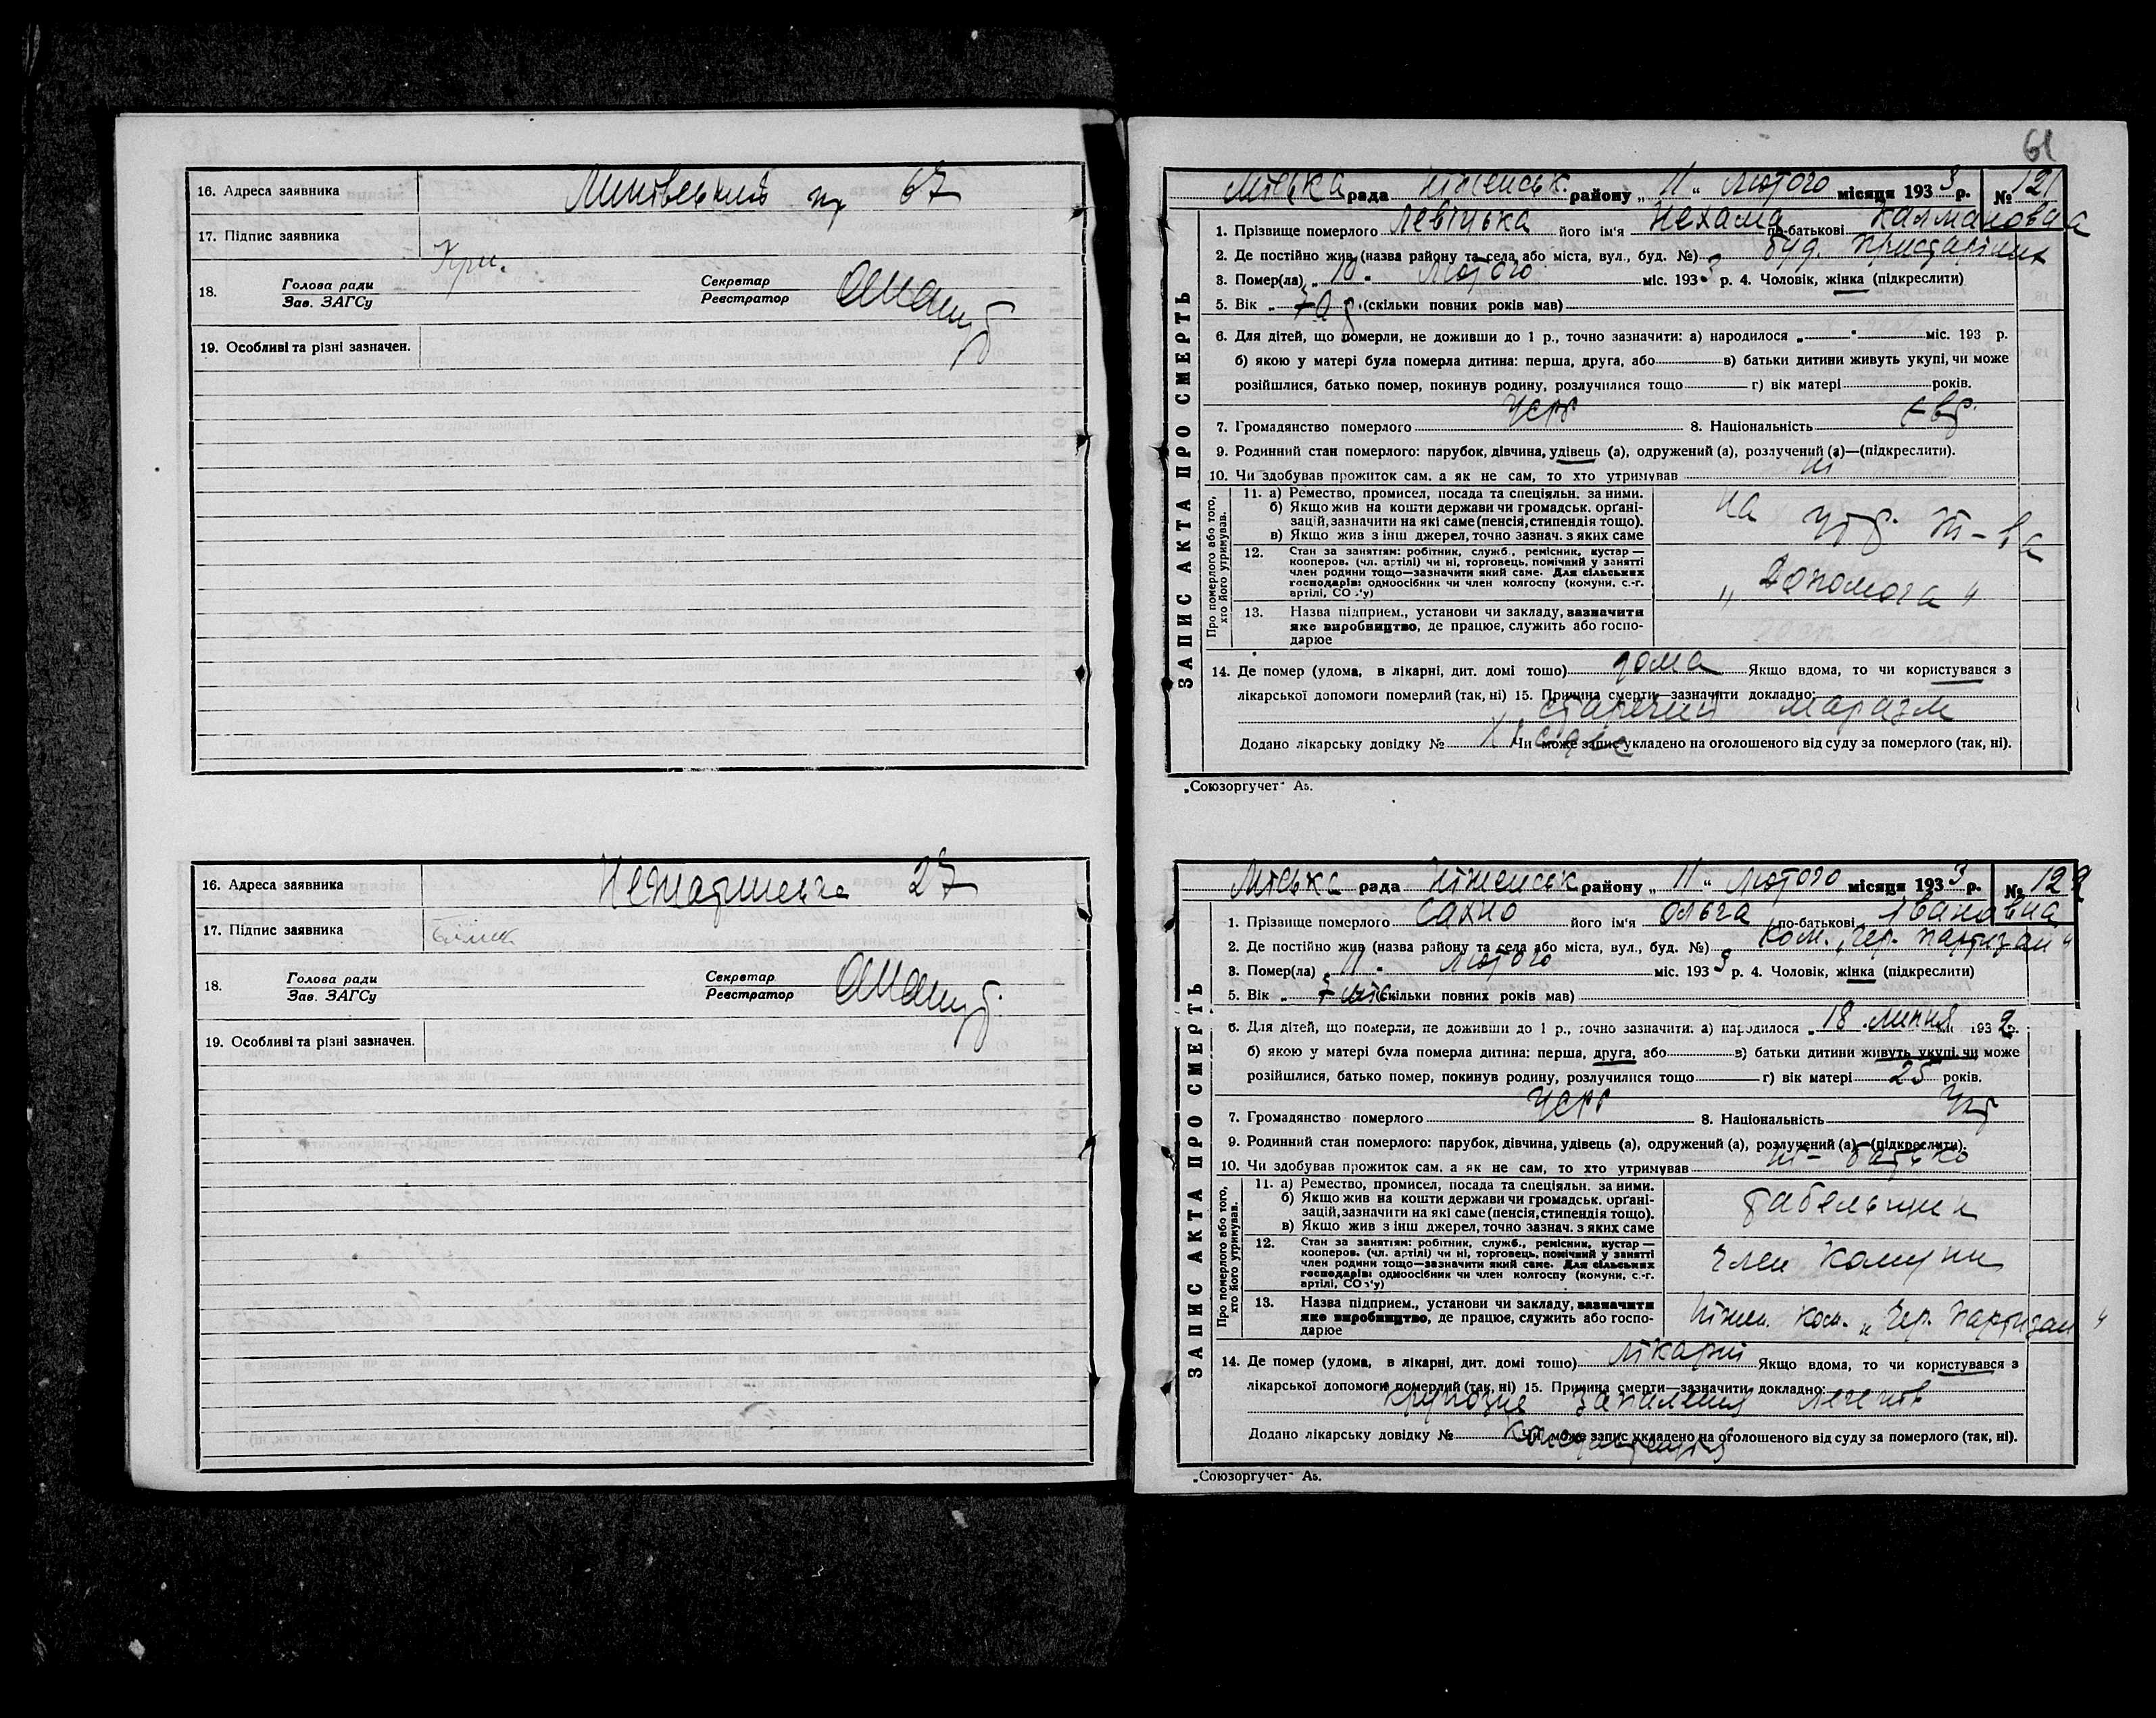 16. Адреса заявника Липівський пр 67
17. Підпис заявника Кри.
18. Голова ради
Зав. ЗАГСу
Секретар
Реєстратор
19. Особливі та різні зазначен.
16. Адреса заявника 27
17. Підпис заявника
18. Голова ради
Зав. ЗАГСу
Секретар
Реєстратор
19. Особливі та різні зазначен.
61
ЗАПИС АКТА ПРО СМЕРТЬ
Міська рада Ніженськ. району „ 11 “ Лютого місяця 1933 р. № 121
1. Прізвище померлого Левіцька його ім'я Нехама по-батькові Калмановна
2. Де постійно жив (назва району та села або міста, вул., буд. №) буд. Пристарілих
3. Помер(ла) „ 10 “ Лютого міс. 1933 р. 4. Чоловік, жінка (підкреслити)
5. Вік „ 70 р. (скільки повних років мав)
6. Для дітей, що померли, не доживши до 1 р., точно зазначити: а) народилося „ “ міс. 193 р.
б) якою у матері була померла дитина: перша, друга, або в) батьки дитини живуть укупі, чи може
розійшлися, батько помер, покинув родину, розлучилися тощо г) вік матері років.
7. Громадянство померлого Усрр 8. Національність Євр.
9. Родинний стан померлого: парубок, дівчина, удівець (а), одружений (а), розлучений (а)—(підкреслити).
10. Чи здобував прожиток сам, а як не сам, то хто утримував ні
Про померлого або того, хто його утримував.
11. а) Ремество, промисел, посада та спеціяльн. за ними.
б) Якщо жив на кошти держави чи громадськ. органі-
зацій, зазначити на які саме (пенсія, стипендія тощо).
в) Якщо жив з інш джерел, точно зазнач. з яких саме
на утр. т-ва
12. Стан за заняттям: робітник, служб., ремісник, кустар —
кооперов. (чл. артілі) чи ні, торговець, помічний у занятті
член родини тощо—зазначити який саме. Для сільських
господарів: одноосібник чи член колгоспу (комуни, с.-г.
артілі, СОЗ'у)
„ Допомога “
13. Назва підприєм., установи чи закладу, зазначити
яке виробництво, де працює, служить або госпо-
дарює
14. Де помер (удома, в лікарні, дит. домі тощо) дома Якщо вдома, то чи користувався з
лікарської допомоги померлий (так, ні) 15. Причина смерти—зазначити докладно:
старечий маразм
Додано лікарську довідку № Чи може запис укладено на оголошеного від суду за померлого (так, ні).
„Союзоргучет“ А5.
ЗАПИС АКТА ПРО СМЕРТЬ
Міська рада Ніженськ району „ 11 “ Лютого місяця 1933 р. № 122
1. Прізвище померлого Сахно його ім'я Ольга по-батькові Івановна
2. Де постійно жив (назва району та села або міста, вул., буд. №) Ком. „Чер. Партизан“
3. Помер(ла) „ 11 “ Лютого міс. 1933 р. 4. Чоловік, жінка (підкреслити)
5. Вік „ 7 міс. (скільки повних років мав)
6. Для дітей, що померли, не доживши до 1 р., точно зазначити: а) народилося „ 18 “ липня 1932 р.
б) якою у матері була померла дитина: перша, друга, або в) батьки дитини живуть укупі, чи може
розійшлися, батько помер, покинув родину, розлучилися тощо г) вік матері 25 років.
7. Громадянство померлого Усрр 8. Національність Укр
9. Родинний стан померлого: парубок, дівчина, удівець (а), одружений (а), розлучений (а)—(підкреслити).
10. Чи здобував прожиток сам, а як не сам, то хто утримував ні - батько
Про померлого або того, хто його утримував.
11. а) Ремество, промисел, посада та спеціяльн. за ними.
б) Якщо жив на кошти держави чи громадськ. органі-
зацій, зазначити на які саме (пенсія, стипендія тощо).
в) Якщо жив з інш джерел, точно зазнач. з яких саме
табельщик
12. Стан за заняттям: робітник, служб., ремісник, кустар —
кооперов. (чл. артілі) чи ні, торговець, помічний у занятті
член родини тощо—зазначити який саме. Для сільських
господарів: одноосібник чи член колгоспу (комуни, с.-г.
артілі, СОЗ'у)
Член Комуни
13. Назва підприєм., установи чи закладу, зазначити
яке виробництво, де працює, служить або госпо-
дарює
Ніжен. Ком. „Чер. Партизан“
14. Де помер (удома, в лікарні, дит. домі тощо) лікарні Якщо вдома, то чи користувався з
лікарської допомоги померлий (так, ні) 15. Причина смерти—зазначити докладно:
крупозне запалення легенів
Додано лікарську довідку № Чи може запис укладено на оголошеного від суду за померлого (так, ні).
„Союзоргучет“ А5.